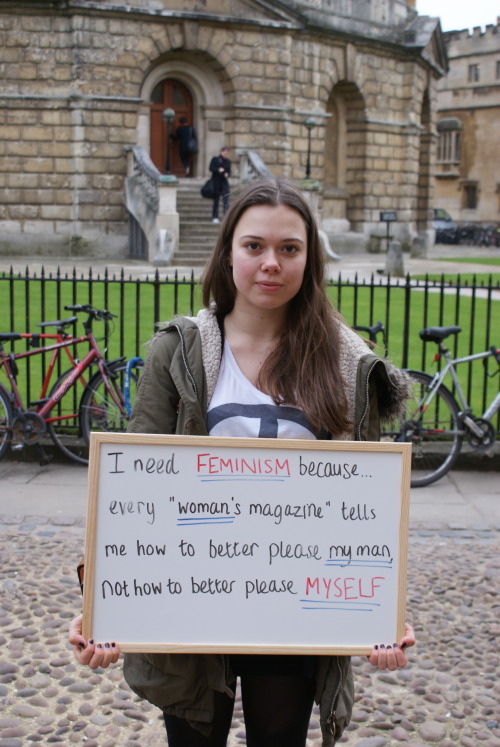 I need FEMINISM because...
every "woman's magazine" tells
me how to better please my man,
not how to better please MYSELF